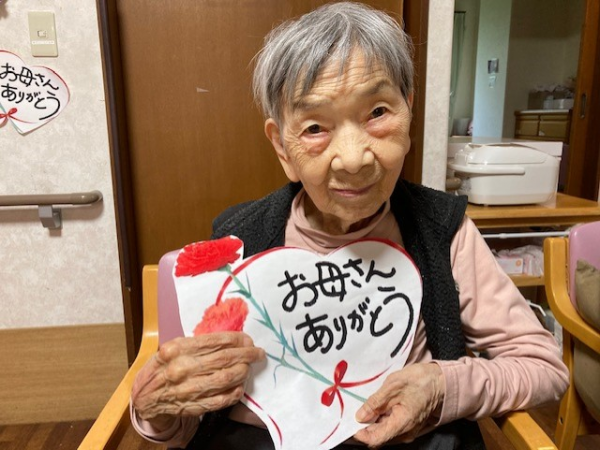 お母さん
ありがとう
お母さん
ありがとう